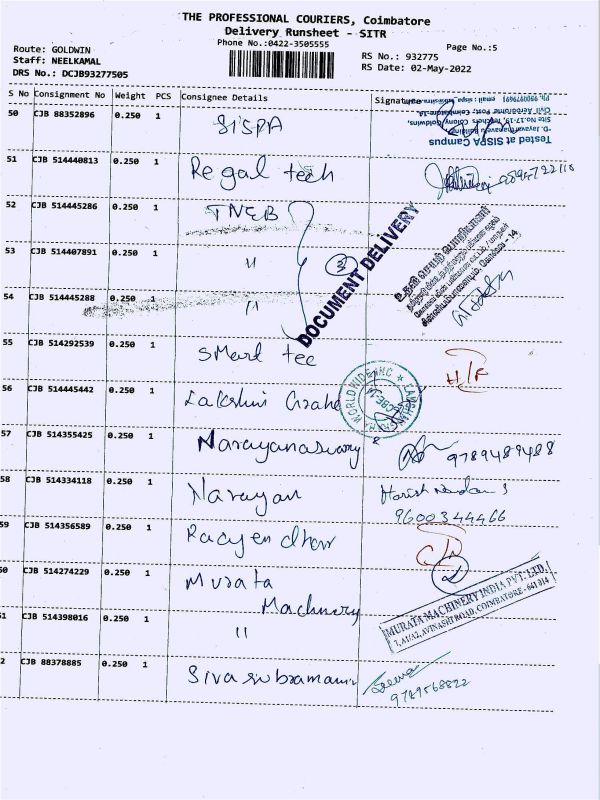 THE PROFESSIONAL COURIERS, Coimbatore
Delivery Runsheet - SITR
Phone No.:0422-3505555
Page No.:5
Route: GOLDWIN
Staff: NEELKAMAL
DRS No.: DCJB93277505
RS No.: 932775
RS Date: 02-May-2022
S No Consignment No Weight PCS Consignee Details Signature
50 CJB 88352896 0.250 1 SISPA
Tested at SISPA Campus
51 CJB 514440813 0.250 1 Regal tech
52 CJB 514445286 0.250 1 TNEB
53 CJB 514407891 0.250 1 "
3
DOCUMENT DELIVERY
54 CJB 514445288 0.250 1 "
55 CJB 514292539 0.250 1 SMard tec
H/F
56 CJB 514445442 0.250 1 Lakshmi
WORLD WIDE INC
57 CJB 514355425 0.250 1 Narayanaswamy 9789489488
58 CJB 514334118 0.250 1 Narayan Harish
9600344466
59 CJB 514356589 0.250 1
60 CJB 514274229 0.250 1 Murata
Machinery
MURATA MACHINERY INDIA PVT. LTD.,
7, A1/A2, AVINASHI ROAD, COIMBATORE - 641 014
61 CJB 514398016 0.250 1 "
2 CJB 88378885 0.250 1 Sivasubramani
9789568822